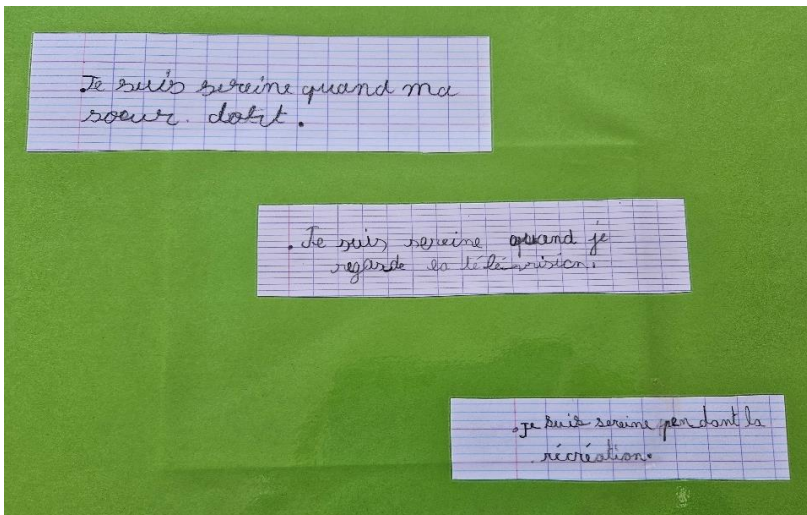 Je suis sereine quand ma
soeur dort.
. Je suis sereine quand je
regarde la télévision.
. je suis sereine pendant la
récréation.